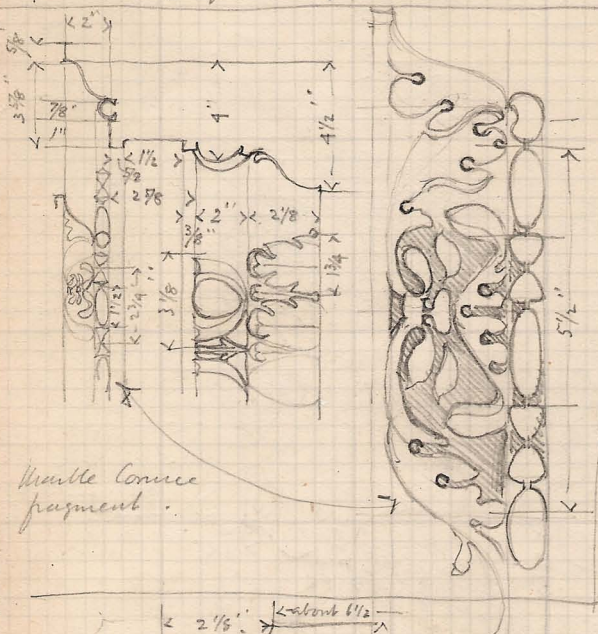 2"
5/8"
3 5/8"
7/8"
1"
4"
4 1/2"
1 1/2
5/2
2 5/8
2"
2 1/8
3/8"
3 1/8"
1 3/4
1 1/2
2 3/4"
5 1/2"
Marble Cornice
fragment.
2 1/8"
about 6 1/2